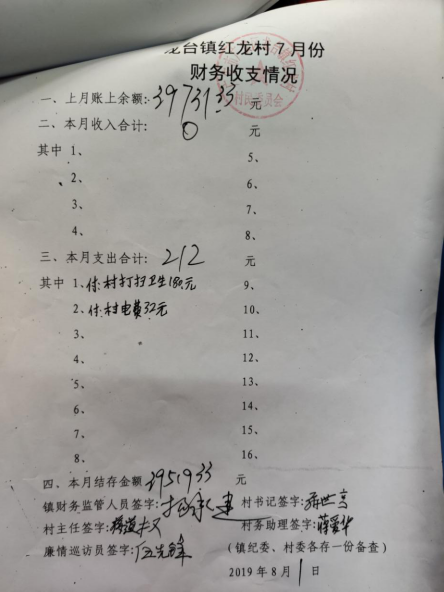 龙台镇红龙村7月份
财务收支情况
一、上月账上余额:39731.33元
二、本月收入合计: 0 元
其中 1、 5、
2、 6、
3、 7、
4、 8、
三、本月支出合计:212 元
其中 1、付:村打扫卫生180元 9、
2、付:村电费32元 10、
3、 11、
4、 12、
5、 13、
6、 14、
7、 15、
8、 16、
四、本月结存金额 39519.33 元
镇财务监管人员签字: 村书记签字:
村主任签字: 村务助理签字:
廉情巡访员签字:伍先锋 (镇纪委、村委各存一份备查)
2019年8月1日